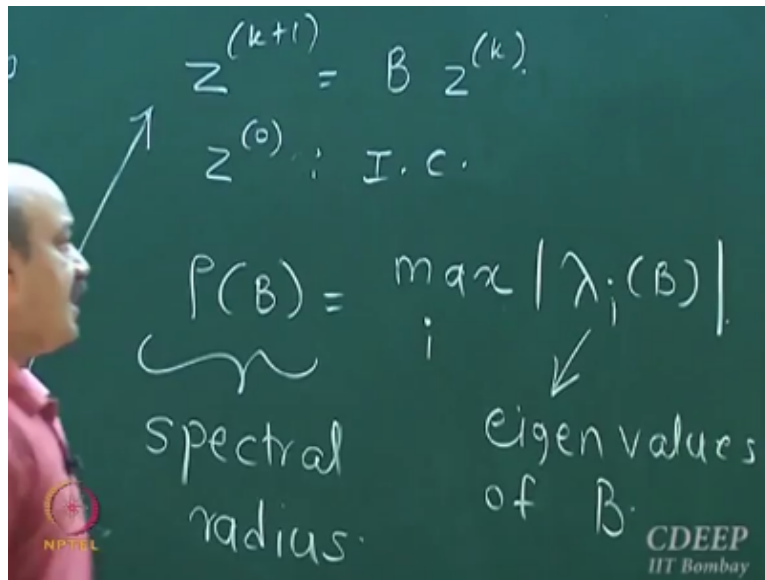 z^(k+1) = B z^(k).
z^(0) : I.C.
ρ(B) = max_i |λ_i(B)|.
spectral
radius.
eigen values
of B.
NPTEL
CDEEP
IIT Bombay